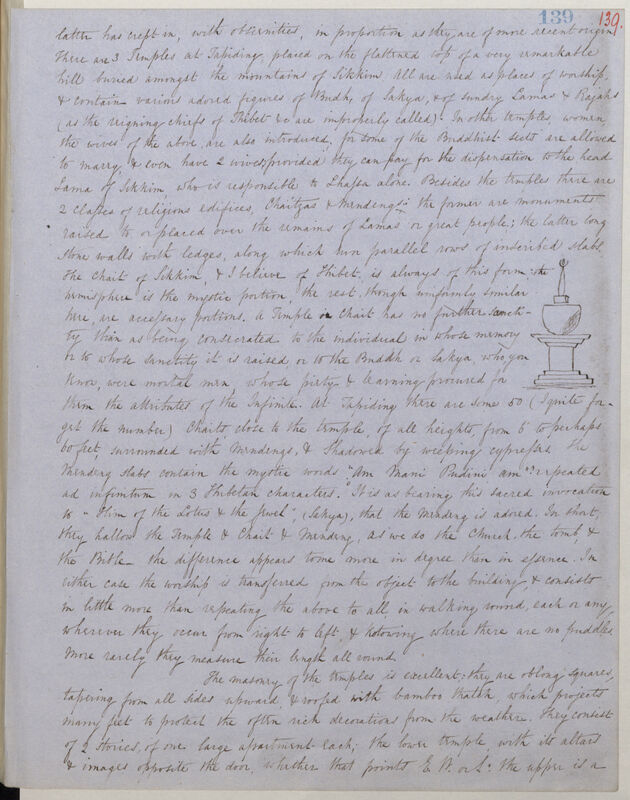 139 139.
latter has crept in, with obscenities, in proportion as they are of more recent origin
There are 3 Temples at Tapiding, placed on the flattened top of a very remarkable
hill buried amongst the mountains of Sikkim. All are used as places of worship,
& contain various adored figures of Budh, of Sakya, & of sundry Lamas & Rajahs
(as the reigning chiefs of Thibet &c are improperly called). In other temples, women,
the wives of the above, are also introduced, for some of the Buddhist sects are allowed
to marry, & even have 2 wives, provided they can pay for the dispensation to the head
Lama of Sikkim who is responsible to Lhassa alone. Besides the temples there are
2 classes of religious edifices, Chaityas & Mendengs: the former are monuments
raised to or placed over the remains of Lamas or great people; the latter long
stone walls with ledges, along which run parallel rows of inscribed slabs
The Chait of Sikkim, & I believe of Thibet, is always of this form: the
hemisphere is the mystic portion, the rest, though uniformly similar
here, are accessary portions. A Temple or Chait has no further sancti-
ty than as being consecrated to the individual in whose memory
or to whose sanctity it is raised or to the Buddh or Sakya, who, you
know, were mortal men, whose piety & learning procured for
them the attributes of the Infinite. At Tapiding there are some 50 (I quite for-
get the number) Chaits, close to the temple, of all heights, from 6 to perhaps
60 feet, surrounded with Mendengs, & shadowed by weeping cypresses. The
Mendeng slabs contain the mystic words "Am Mani Pudmi am" repeated
ad infinitum in 3 Thibetan characters. It is as bearing this sacred invocation
to "Him of the Lotus & the Jewel", (Sakya), that the Mendeng is adored. In short,
they hallow the Temple & Chait & Mendeng, as we do the Church, the tomb, &
the Bible—the difference appears to me more in degree than in essence. In
either case the worship is transferred from the object to the building, & consists
in little more than repeating the above to all, in walking round, each or any,
wherever they occur from right to left, & kotowing where there are no puddles.
More rarely they measure their length all round.
The masonry of the temples is excellent: they are oblong squares,
tapering from all sides upward, & roofed with bamboo thatch, which projects
many feet to protect the often rich decorations from the weather. They consist
of 2 stories, of one large apartment each; the lower temple, with its altars
& images opposite the door, whether that points E. W. or S.: the upper is a